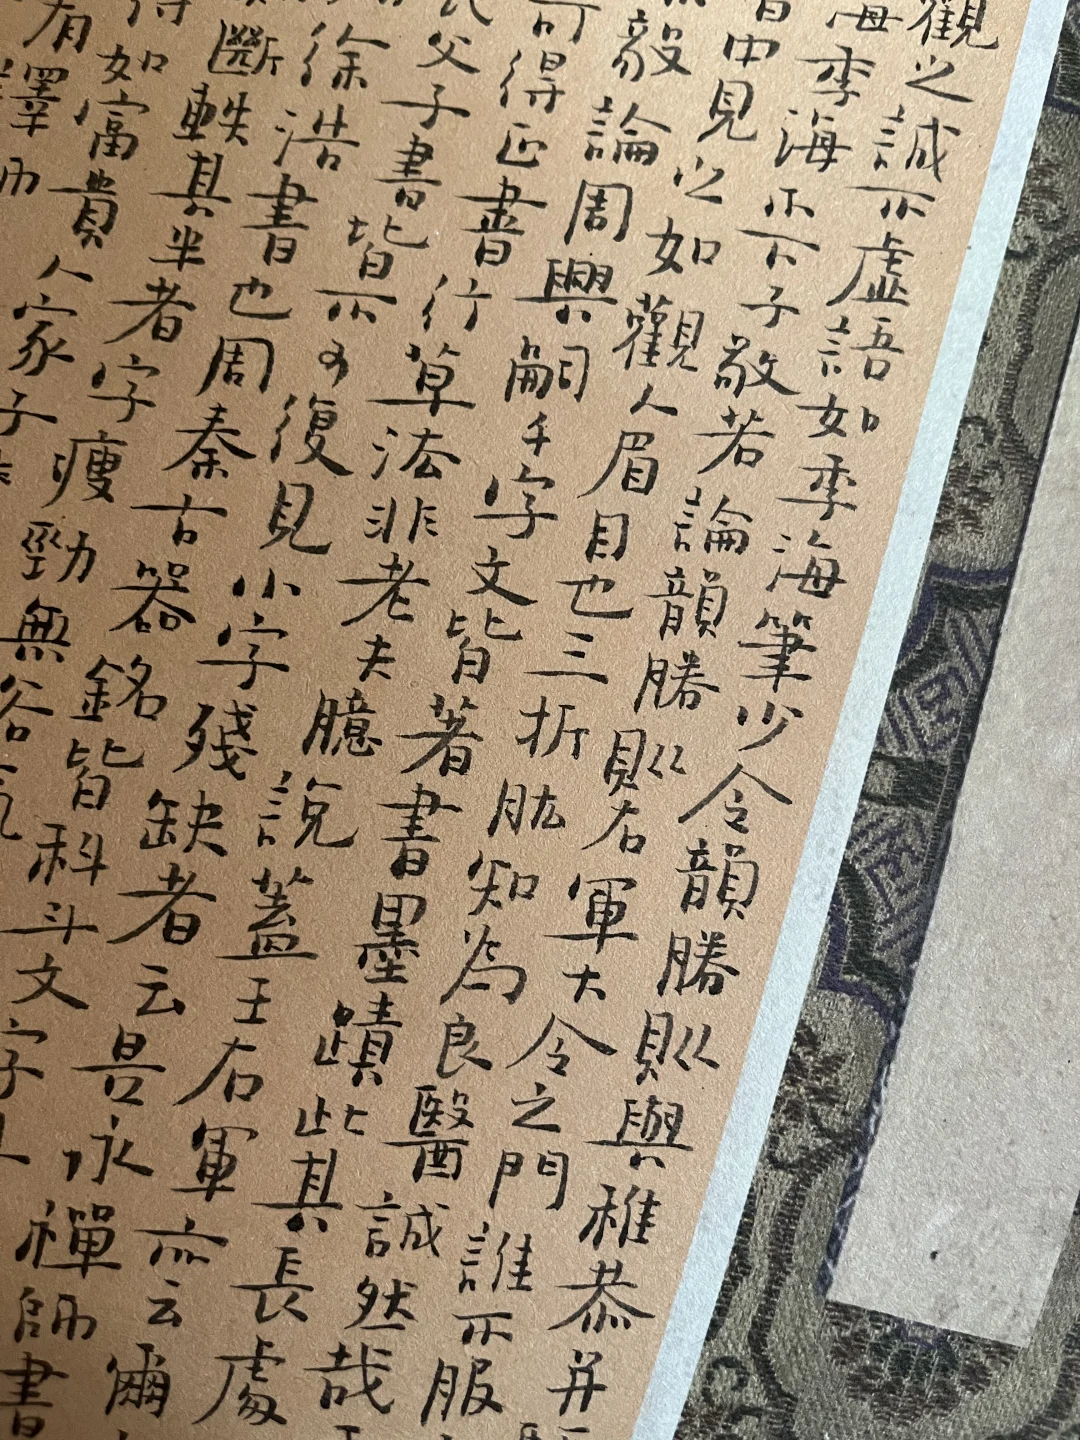 觀之誠不虛語如季海筆少令韻勝則與稚恭并
海季海不下子敬若論韻勝則右軍大令之門誰不服
中見之如觀人眉目也三折肱知為良醫誠然哉
毅論周興嗣千字文皆著書墨蹟此其長處
可得正書行草法非老夫臆說蓋王右軍亦云爾
父子書皆不可復見小字殘缺者云是永禪師書
徐浩書也周秦古器銘皆科斗文字
斷軼其半者字瘦勁無俗氣
如富貴人家子
有